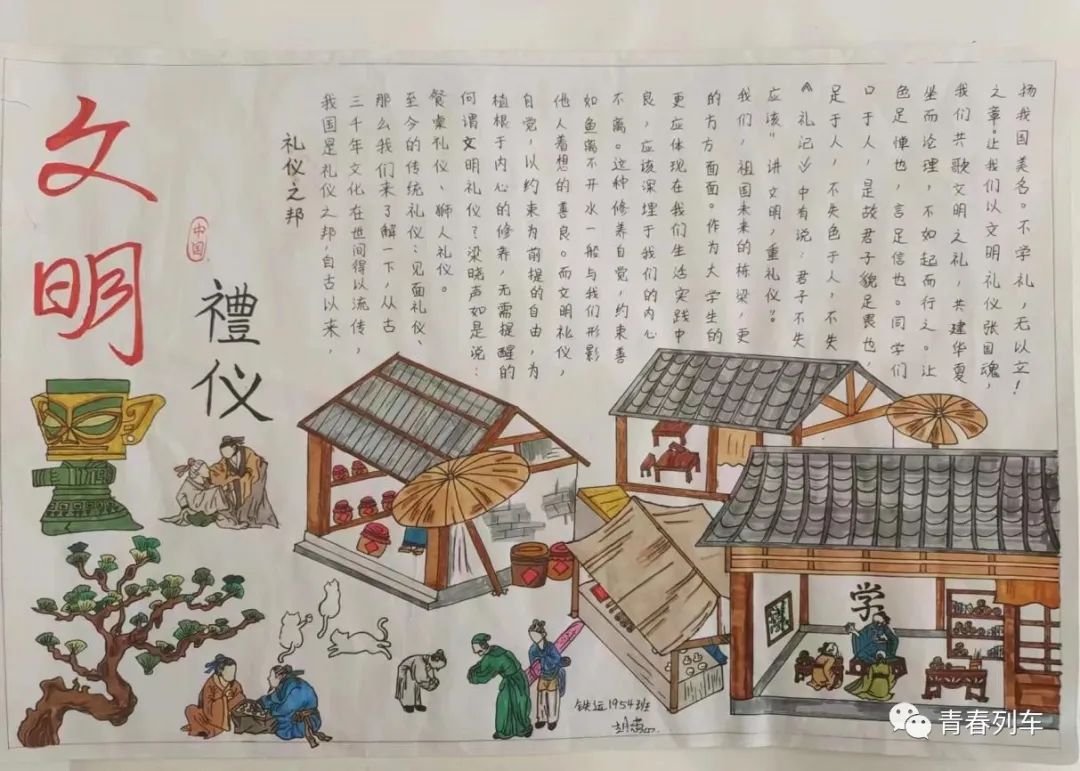 文明
中国
禮仪
礼仪之邦
我国是礼仪之邦,自古以来,
三千年文化在世间得以流传,
那么我们来了解一下,从古
至今的传统礼仪:见面礼仪、
餐桌礼仪、狮人礼仪。
何谓文明礼仪?梁晓声如是说:
植根于内心的修养,无需提醒的
自觉,以约束为前提的自由,为
他人着想的善良。而文明礼仪,
如鱼离不开水一般与我们形影
不离。这种修养自觉,约束善
良,应该深埋于我们的内心
更应体现在我们生活实践中
的方方面面。作为大学生的
我们,祖国未来的栋梁,更
应该“讲文明,重礼仪”。
《礼记》中有说:君子不失
足于人,不失色于人,不失
口于人,是故君子貌足畏也,
色足惮也,言足信也。同学们
坐而论理,不如起而行之。让
我们共歌文明之礼,共建华夏
之章。让我们以文明礼仪张国魂,
扬我国美名。不学礼,无以立!
学
铁运1954班
青春列车